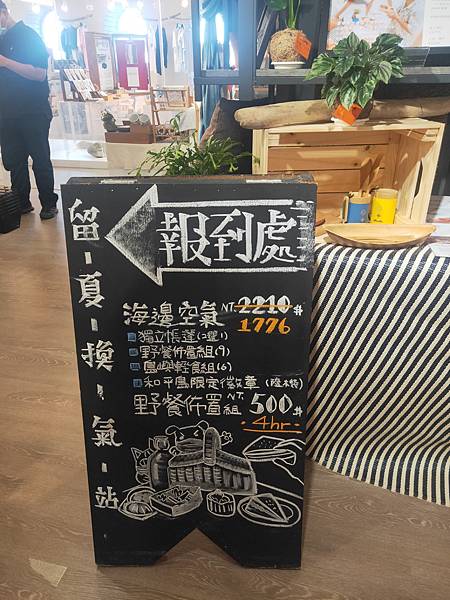 留-夏-換-氣-站
報到處
海邊空氣 NT. 2210 1776
獨立帳蓬
野餐佈置組(9)
島嶼輕食組(6)
和平島限定徽章
野餐佈置組 NT. 500
4hr